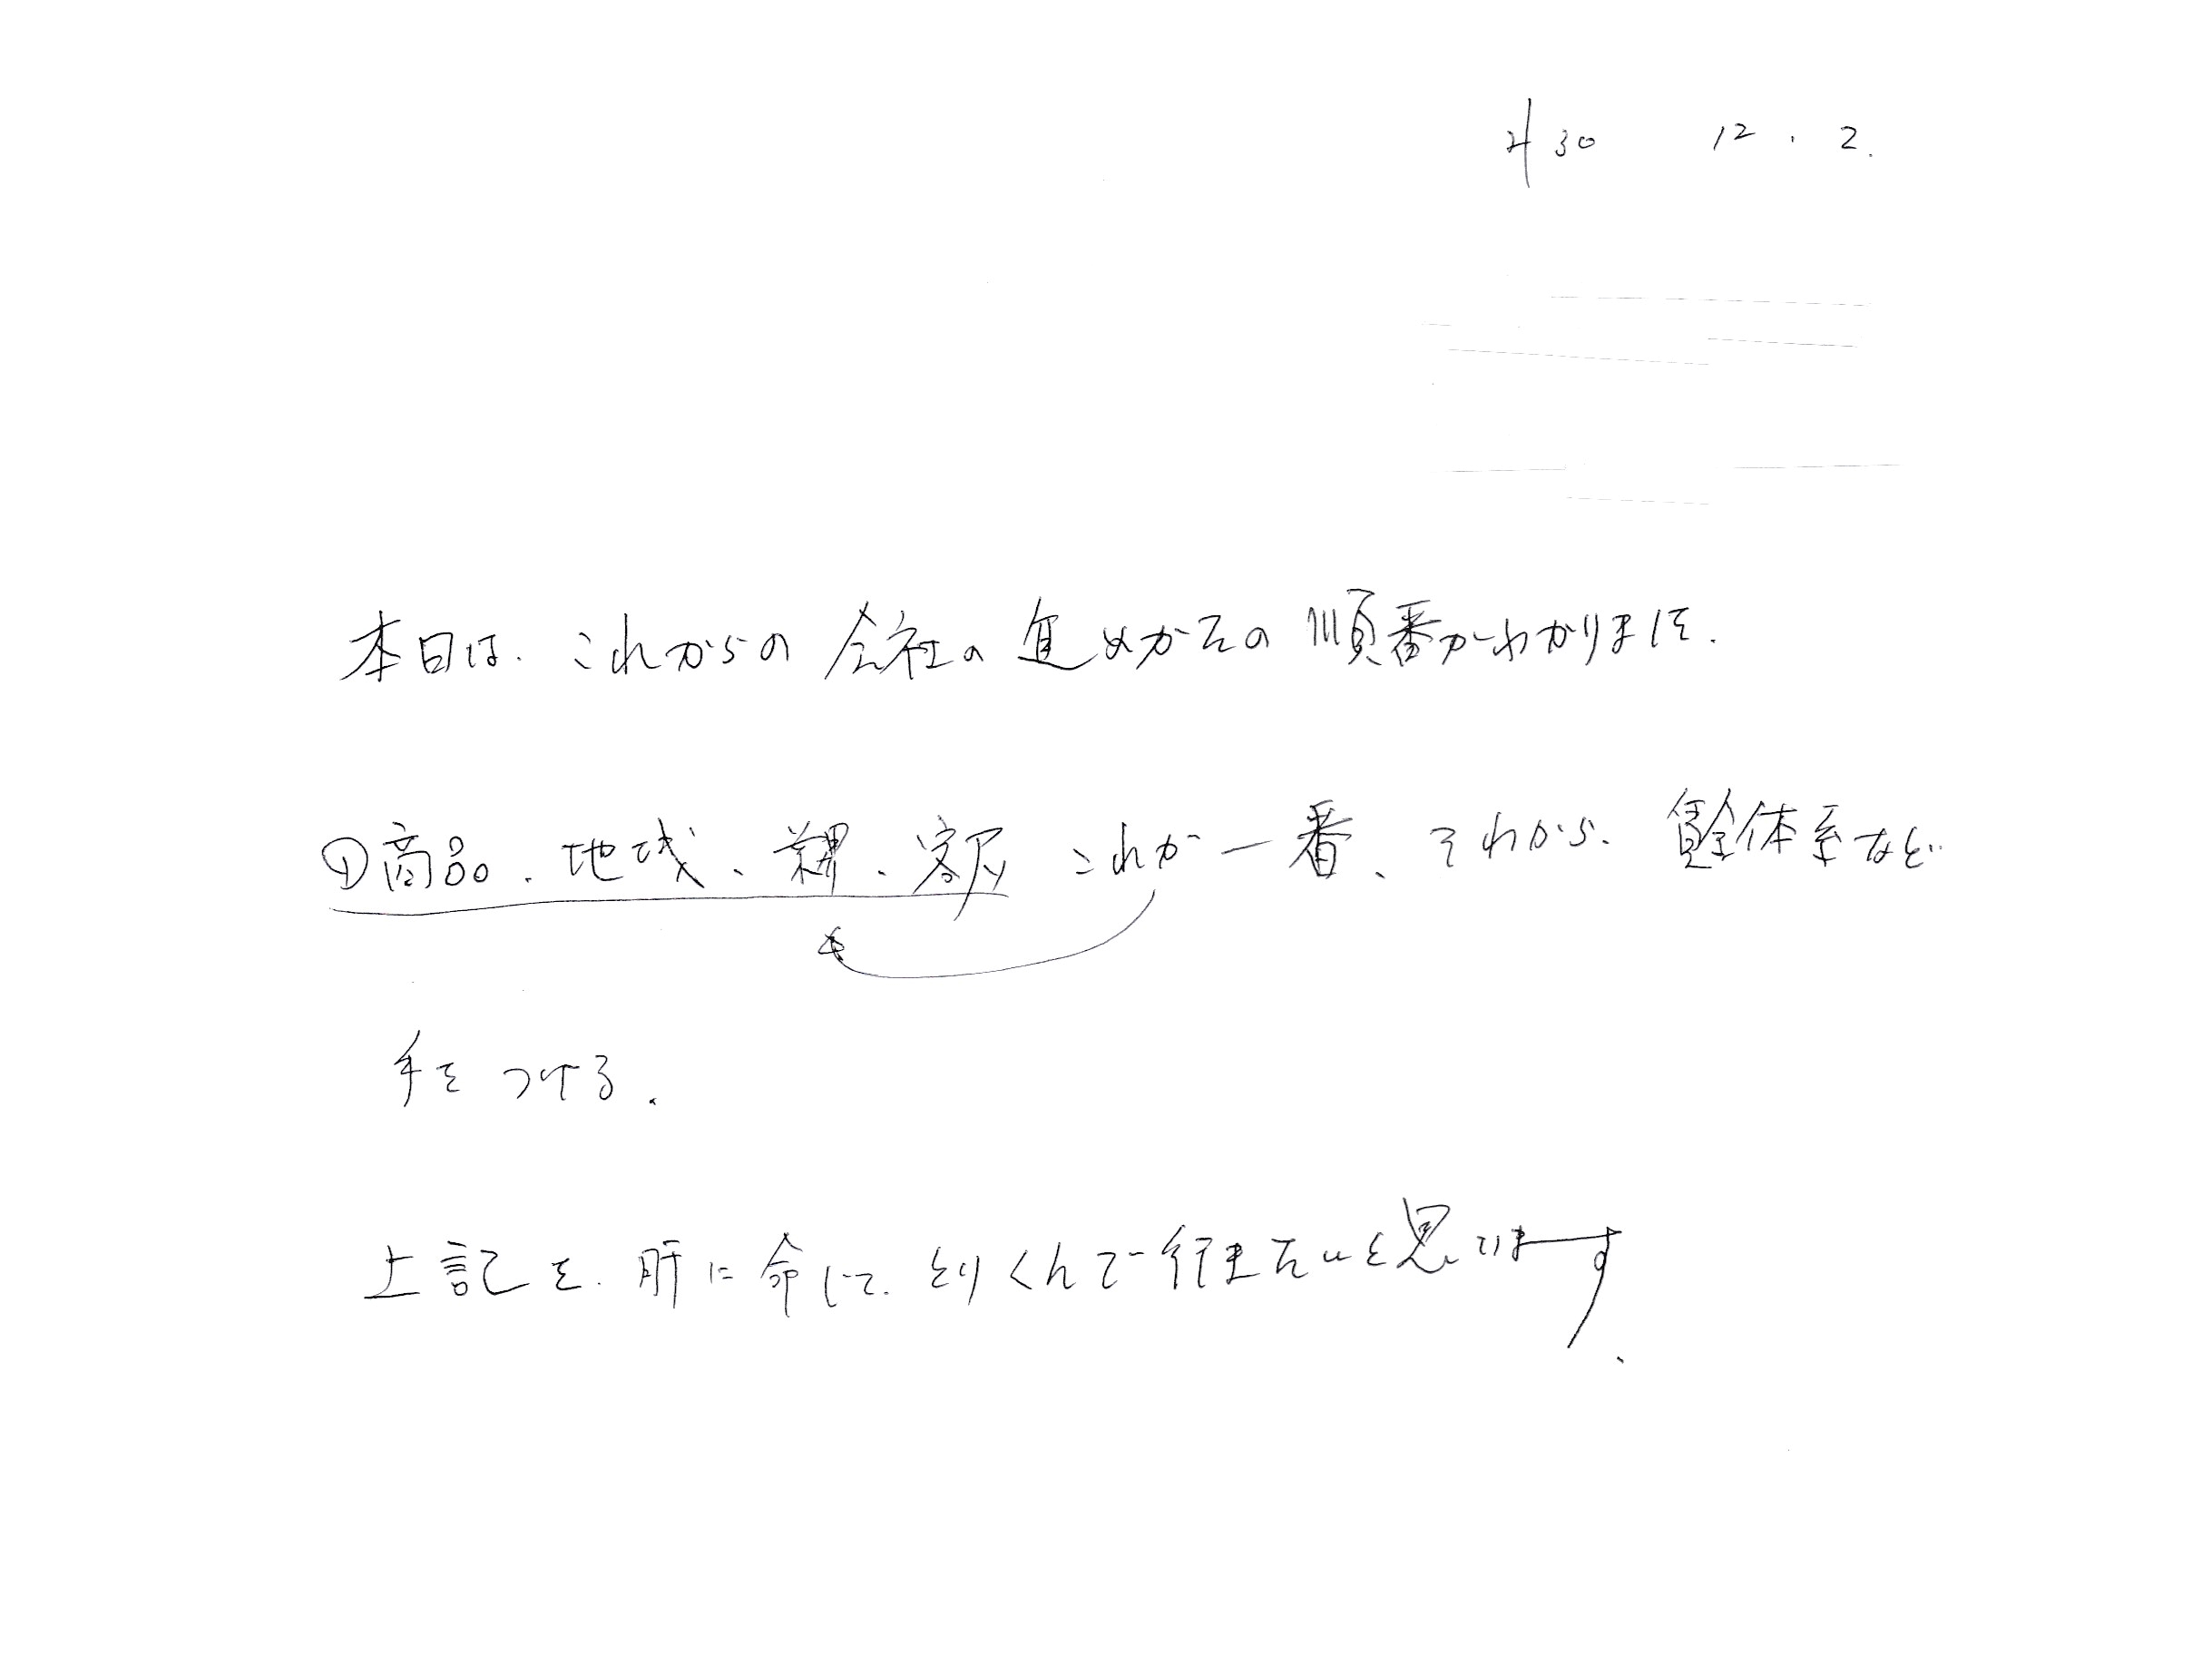 H30 12.2.
本日は、これからの会社の進めかたの順番がわかりました.
①商品、地域、業界、客層 これが一番、それから、賃金体系など
手をつける.
上記を、肝に命じて、とりくんで行きたいと思います.